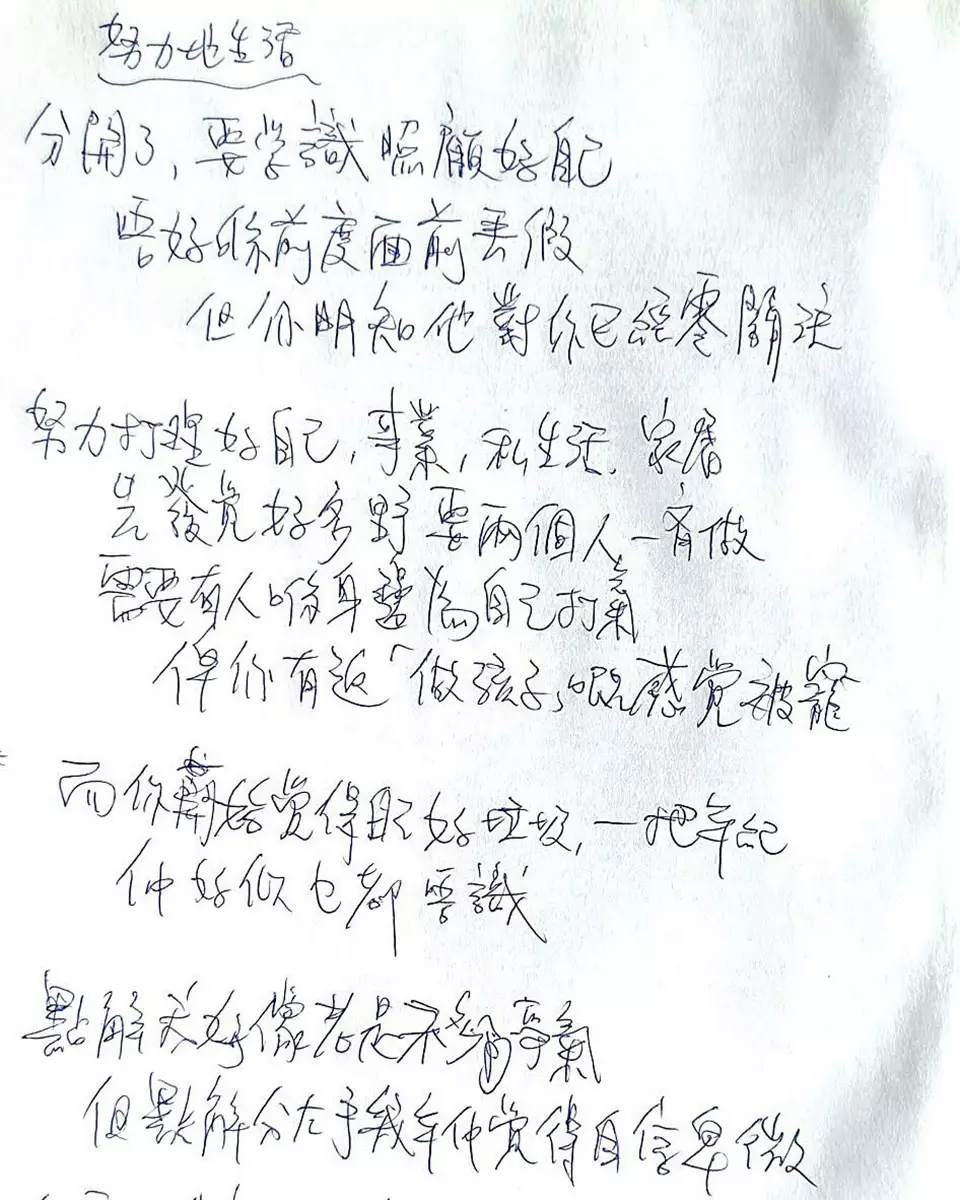 努力地生活
分開了，要学識照顧好自己
唔好喺前度面前丟假
但你明知他對你已經零關注
努力打理好自己，事業，私生活、家居
先發覚好多野要兩個人一齊做
需要有人喺身邊為自己打氣
俾你有返「做孩子」嘅感覚被寵
而你開始覚得自己好垃圾，一把年紀
仲好似乜都唔識
點解我好像老是不夠爭氣
但點解分左手幾年仲覚得自信卑微